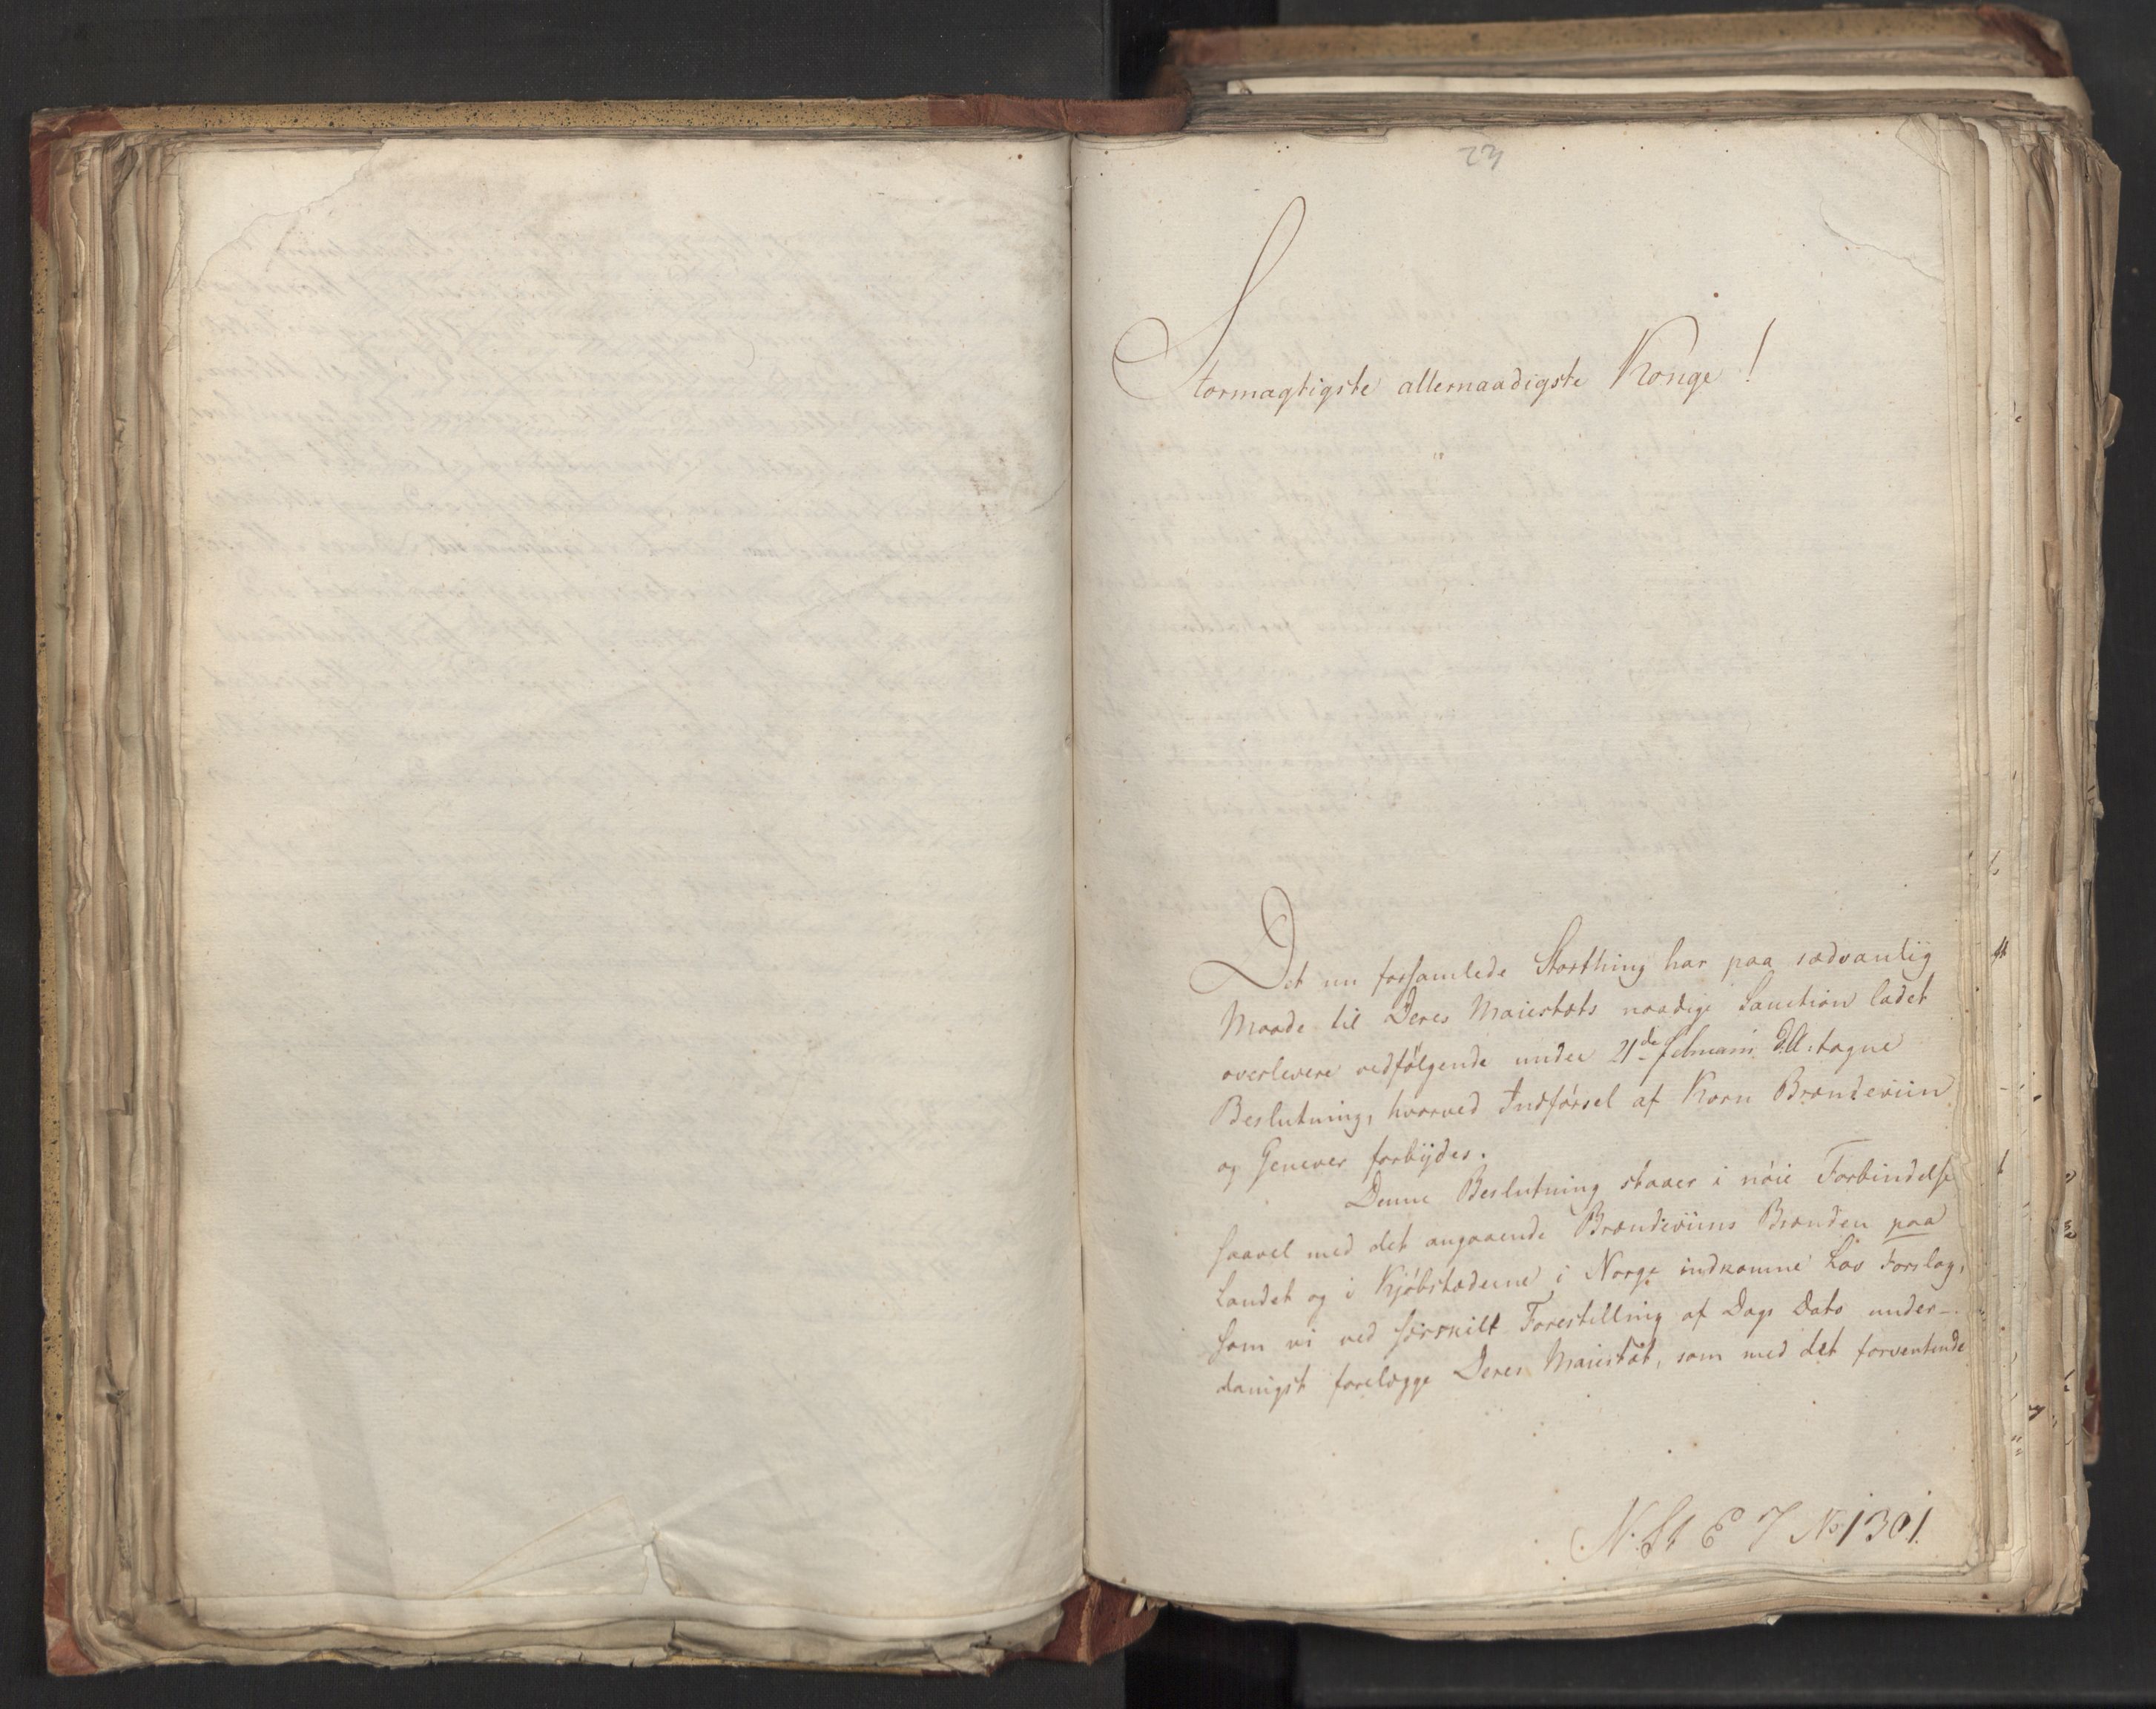 23
Stormagtigste allernaadigste Konge!
Det nu forsamlede Storthing har paa sædvanlig
Maade til Deres Maiestæts naadige Sanction ladet
overlevere vedfølgende under 21de februarii d.A. tagne
Beslutning, hvorved Indførsel af Korn Brændeviin
og Genever forbÿdes.
Denne Beslutning staaer i nöie Forbindelse
saavel med det angaaende Brændeviins Brænden paa
Landet og i Kjøbstæderne i Norge indkomne Lov Forslag,
som vi ved særskilt Forestilling af Dags Dato under-
danigst forelægge Deres Maiestæt, som med det forventende
N. St E 7 No 1301.